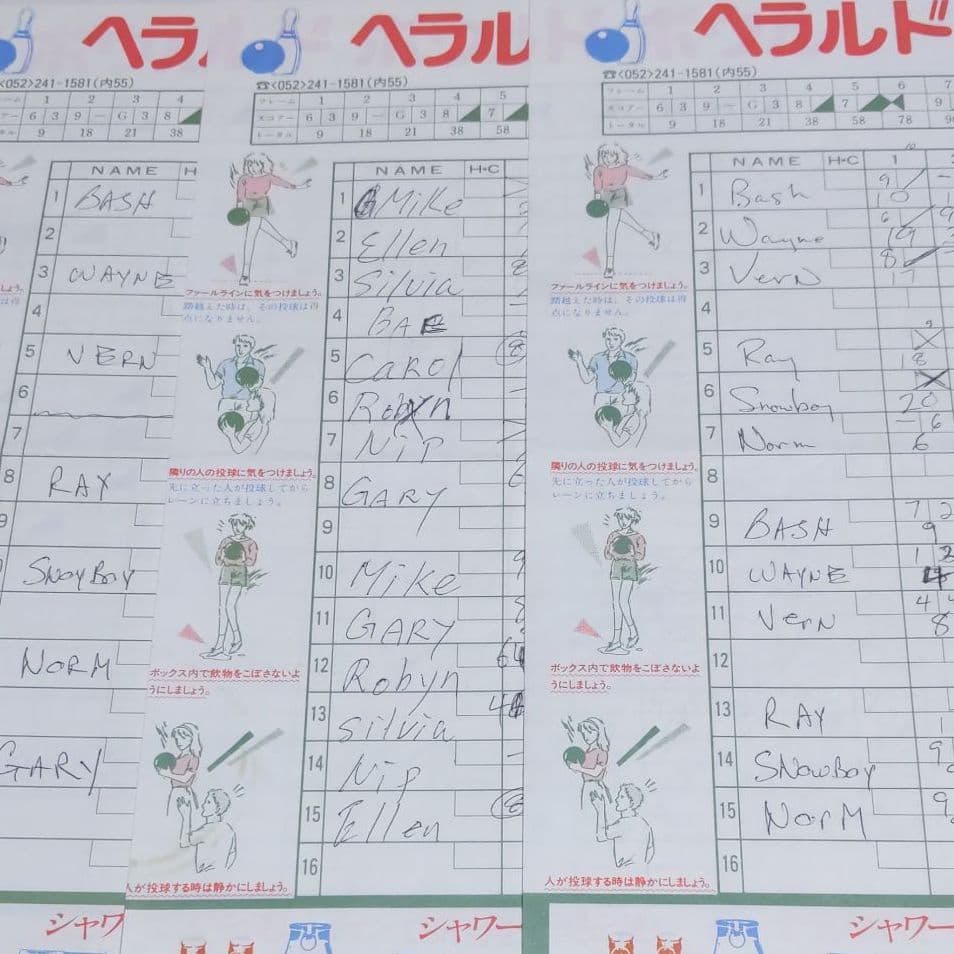 ヘラ
<052>241-1581(内55)
1 2 3 4
6 3 9 － G 3 8
9 18 21 38
NAME H
1 BASH
2
3 WAYNE
4
5 VERN
6
7
8 RAY
9
10 SNOYBOY
NORM
GARY
シャワ
ヘラル
☎<052>241-1581(内55)
フレーム 1 2 3 4 5
スコアー 6 3 9 － G 3 8 7
トータル 9 18 21 38 58
NAME H·C
1 Mike
2 Ellen
3 Silvia
4
5 Carol 8
6 Robyn
7 Nip
8 GARY
9
10 Mike
11 GARY
12 Robyn
13 Silvia
14 Nip
15 Ellen 8
16
ファールラインに気をつけましょう。
踏越えた時は、その投球は得
点になりません。
隣りの人の投球に気をつけましょう。
先に立った人が投球してから
レーンに立ちましょう。
ボックス内で飲物をこぼさないよ
うにしましょう。
人が投球する時は静かにしましょう。
シャワー
ヘラルド
☎<052>241-1581(内55)
フレーム 1 2 3 4 5 6 7
スコアー 6 3 9 － G 3 8 7 9
トータル 9 18 21 38 58 78
NAME H·C 1
1 Bash 9 10
2 Wayne 6 19
3 Vern 8 17
4
5 Ray 18
6 Snowboy 20
7 Norm － 6 6
8
9 BASH 7 2 9
10 WAYNE 1 2 4
11 Vern 4 4 8
12
13 RAY
14 SNOWBOY 9
15 NorM 9
16
ファールラインに気をつけましょう。
踏越えた時は、その投球は得
点になりません。
隣りの人の投球に気をつけましょう。
先に立った人が投球してから
レーンに立ちましょう。
ボックス内で飲物をこぼさないよ
うにしましょう。
人が投球する時は静かにしましょう。
シャワー